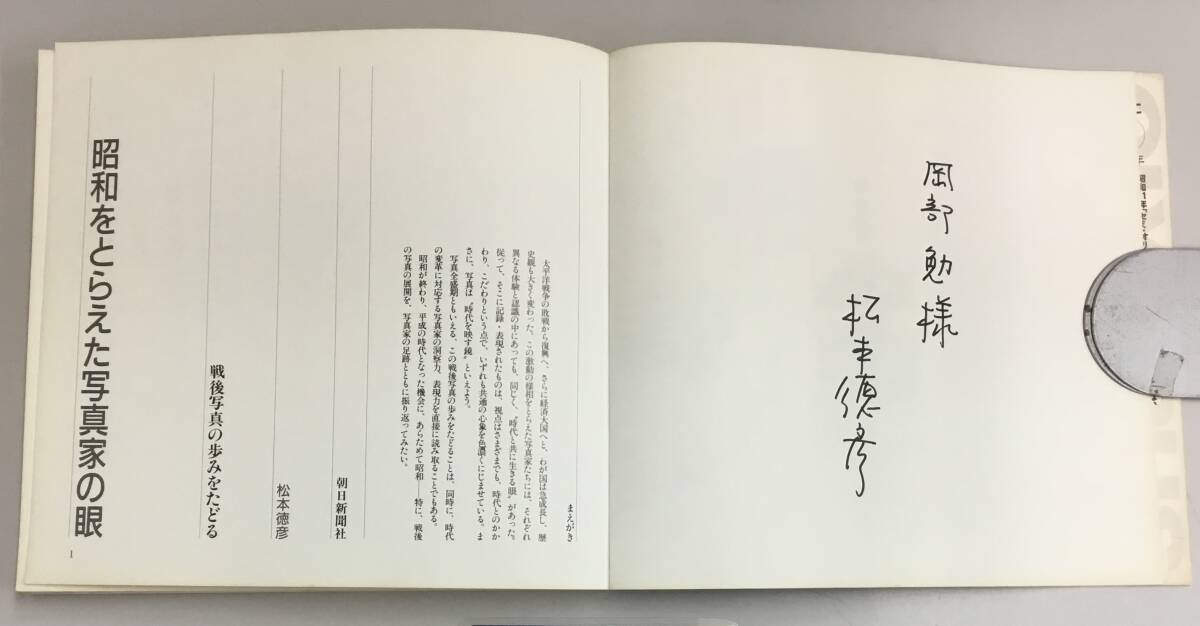 岡部勉様
松本徳彦
まえがき
太平洋戦争の敗戦から復興へ、さらに経済大国へと、わが国は急成長し、歴
史観も大きく変わった。この激動の様相をとらえた写真家たちには、それぞれ
異なる体験と認識の中にあっても、同じく、〝時代と共に生きる眼〟があった。
従って、そこに記録・表現されたものは、視点はさまざまでも、時代とのかか
わり、こだわりという点で、いずれも共通の心象を色濃くにじませている。ま
さに、写真は〝時代を映す鏡〟といえよう。
写真全盛期ともいえる、この戦後写真の歩みをたどることは、同時に、時代
の変革に対応する写真家の洞察力、表現力を直接に読み取ることでもある。
昭和が終わり、平成の時代となった機会に、あらためて昭和――特に、戦後
の写真の展開を、写真家の足跡とともに振り返ってみたい。
朝日新聞社
松本徳彦
戦後写真の歩みをたどる
昭和をとらえた写真家の眼
1